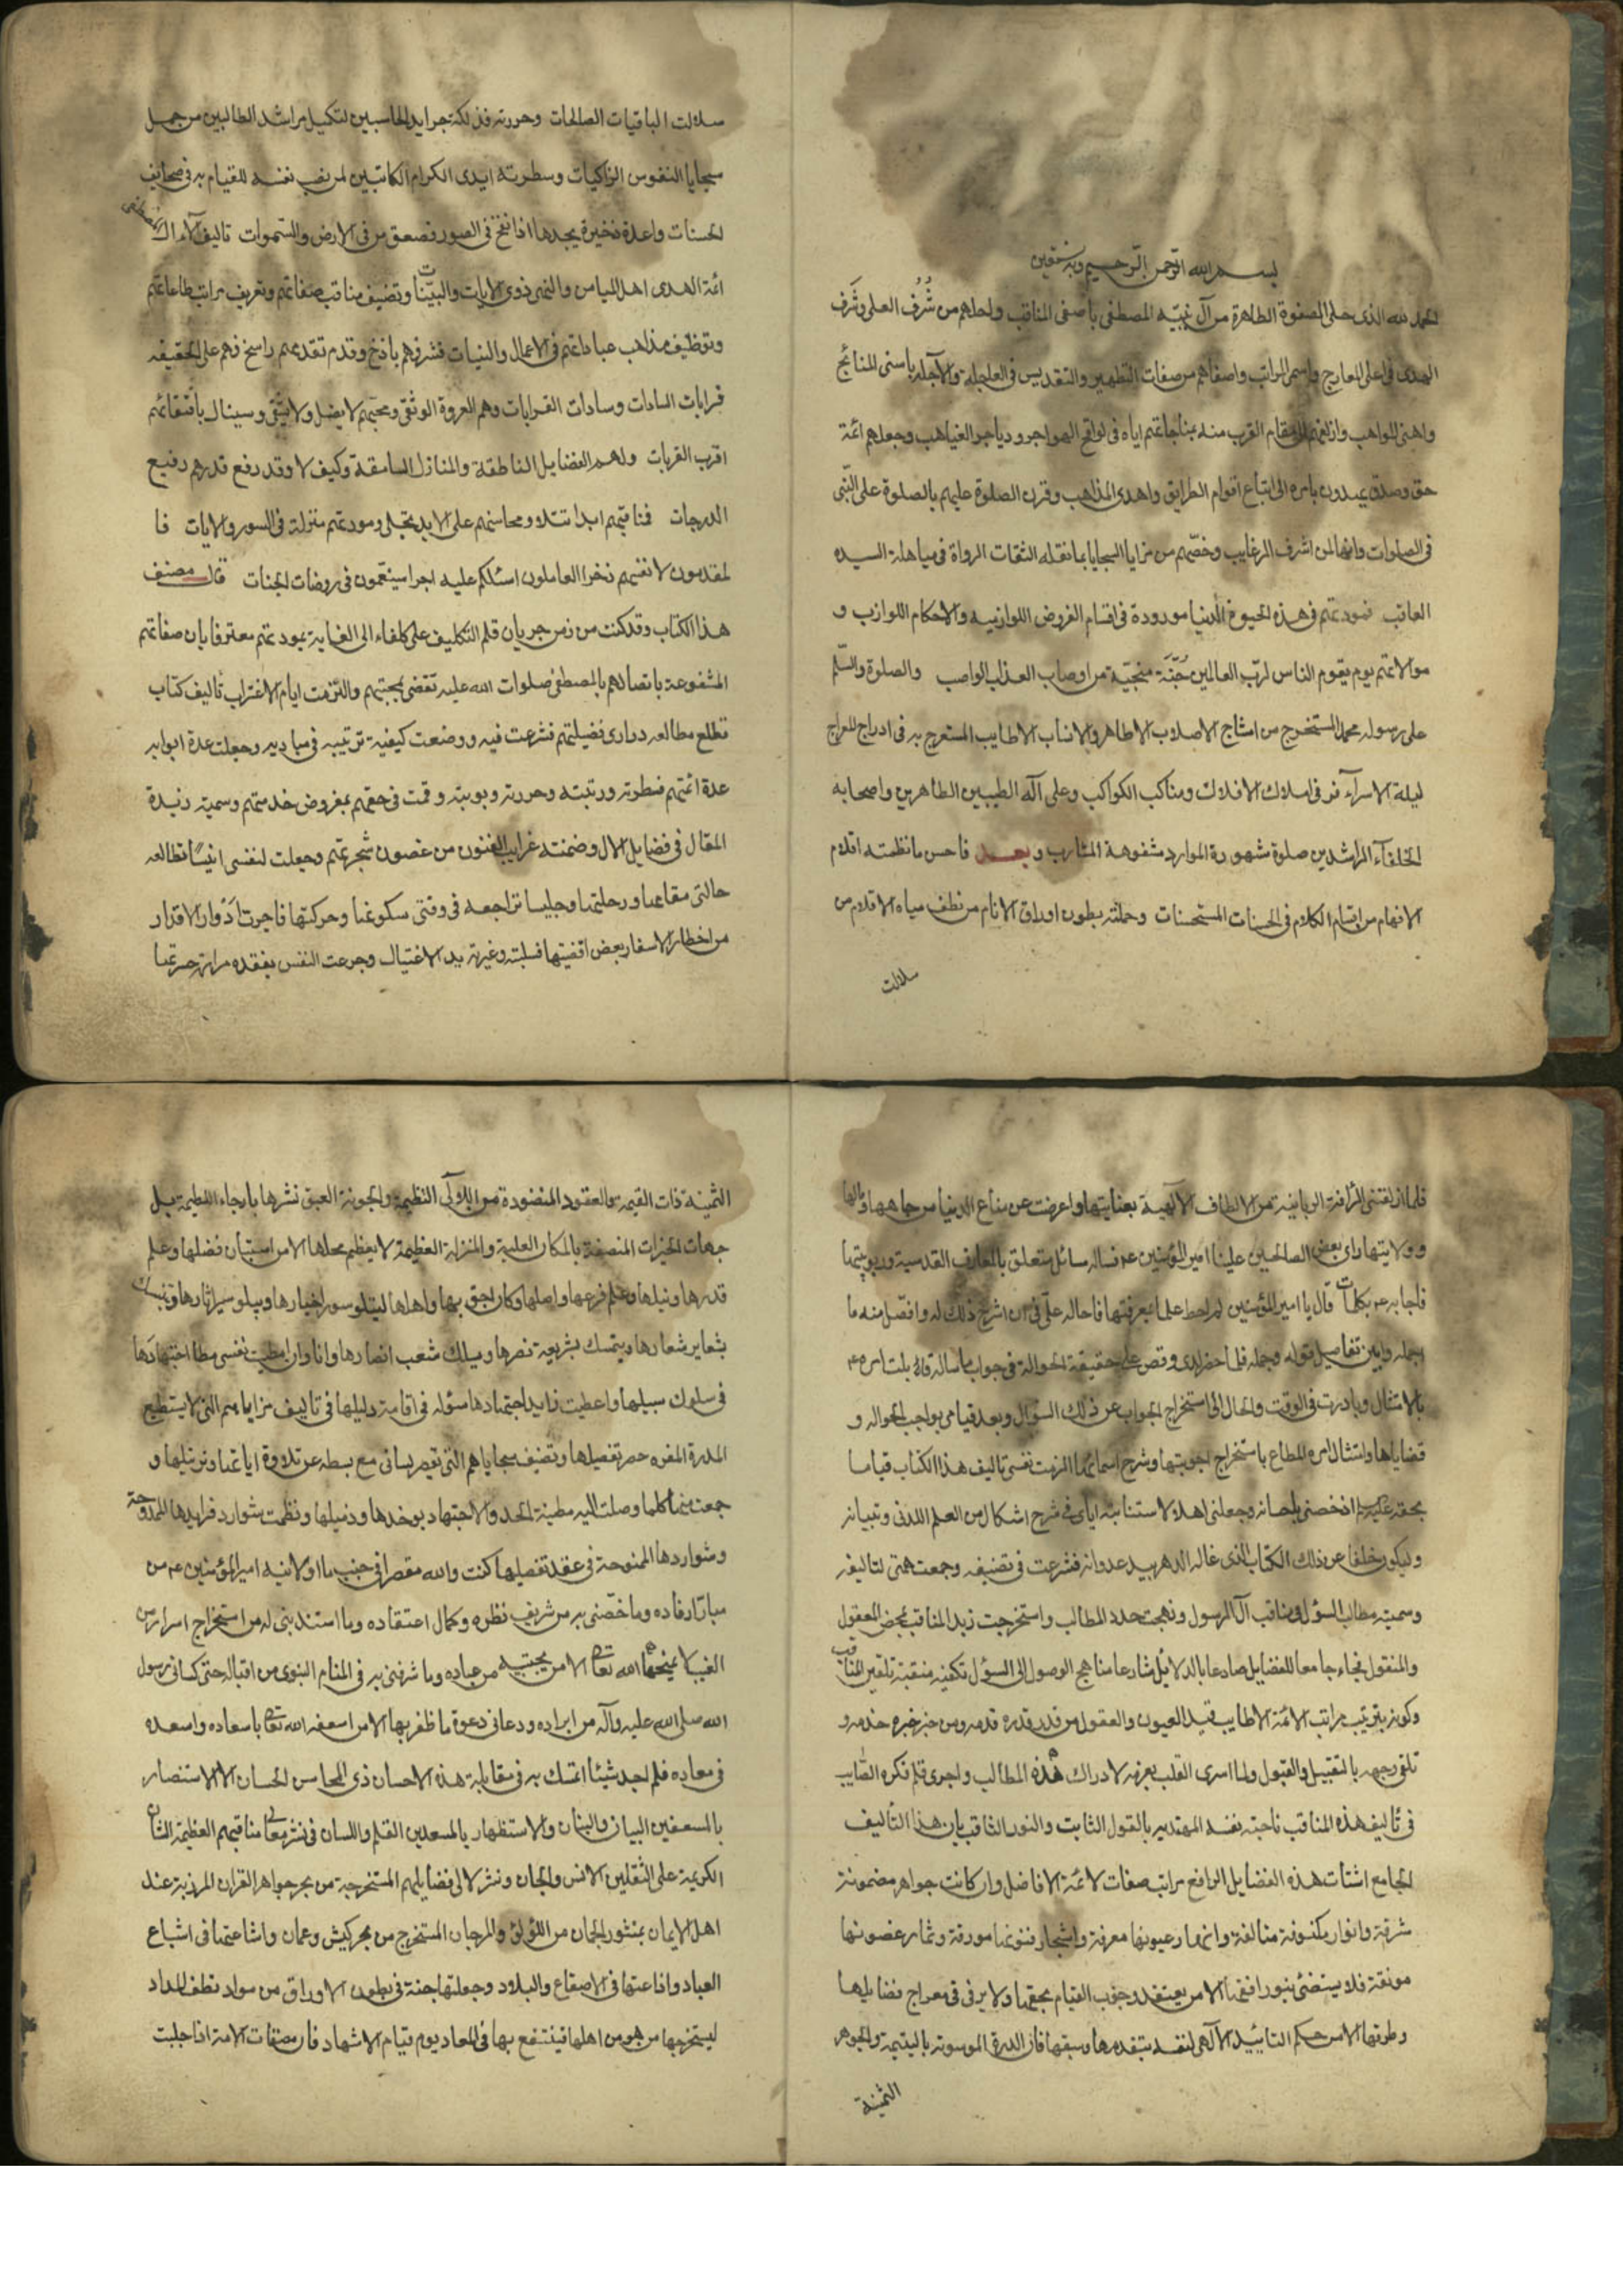 بسم الله الرحمن الرحيم وبه نستعين
الحمد لله الذى حلى الصفوة الطاهرة من آل نبيّه المصطفى باصفى المناقب واحلهم من شُرُف العلى وشَرَف
الهدى فى اعلى المعارج واسمى المراتب واصفاهم من صفات التطهير والتقديس فى العاجلة والآجلة باسنى المنائح
واهنى المواهب وازلفهم الى مقام القرب منه بمناجاتهم اياه فى لوافح الهواجر ودياجر الغياهب وجعلهم ائمة
حق وصدق يهدون بامره الى اتباع اقوام الطرايق واهدى المذاهب وقرن الصلوة عليهم بالصلوة على النّبى
فى الصلوات وانها لمن اشرف الرغايب وخصّهم من مزايا السجايا بما نقله الثقات الرواة فى مباهلة السيد
العاقب فمودتهم فى هذه الحيوة الدنيا مورودة فى اقسام الفروض اللوازبيه والاحكام اللوازب و
موالاتهم يوم يقوم الناس لربّ العالمين جُنّة منجية من اوصاب العذاب الواصب والصلوة والسّلم
على رسوله محمد المستخرج من امشاج الاصلاب الاطاهر والانساب الاطايب المستعرج به فى ادراج المعراج
ليلة الاسرآء فى املاك الافلاك ومناكب الكواكب وعلى آله الطيبين الطاهرين واصحابه
الخلفآء الراشدين صلوة مشهورة الموارد مشفوهة المشارب وبعد فاحسن ما نظمته اقلام
الافهام من اقسام الكلام فى الحسنات المستحسنات وحملته بطون اوراق الانام من نطف مياه الاقلام من
سلالت
سلالت الباقيات الصالحات وحررته فذلكة جرايد الحاسبين لتكميل مراشد الطالبين من جمل
سجايا النفوس الزاكيات وسطرته ايدى الكرام الكاتبين لمن نصب نفسه للقيام به فى صحايف
الحسنات واعدة ذخيرة يجدها اذا نفخ فى الصور فصعق من فى الارض والسموات تاليف آلاء آل المصطفى
ائمة الهدى اهل الميامن والنهى ذوى الايات والبيّنات وتصنيف مناقب صفاتهم وتعريف مراتب طاعاتهم
وتوظيف مذاهب عباداتهم فى الاعمال والنيات فشرفهم باذخ وقدم تقدمهم راسخ وهم على الحقيقه
قرابات السادات وسادات القرابات وهم العروة الوثقى ومحبهم لا يضل ولا يشقى وسينال باقتفائهم
اقرب القربات ولهم الفضايل الناطقة والمنازل السامقة وكيف لا وقد رفع قدرهم رفيع
الدرجات فمناقبهم ابدا تتلا ومحاسنهم على الابد تجلى ومودتهم منزلة فى السور والايات فا
لمقدمون لانفسهم ذخرا العاملون اسئلكم عليه اجرا سينعمون فى روضات الجنات قال مصنف
هذا الكتاب وقد كنت من زمن جريان قلم التكليف على كلفاء الى الغاية بمودتهم معترفا بان صفاتهم
المشفوعة باتصالهم بالمصطفى صلوات الله عليه تقضى بمحبتهم والتزمت ايام الاغتراب تاليف كتاب
تطلع مطالعه درارى فضيلتهم فشرعت فيه ووضعت كيفية ترتيبه فى مباديه وجعلت عدة ابوابه
عدة ائمتهم فسطرته ورتبته وحررته وبوبته وقمت فى حقهم بمفروض خدمتهم وسميته زبدة
المقال فى فضايل الآل وضمنته غرايب الفنون من غصون شجرتهم وجعلت لنفسى انيسًا تطالعه
حالتى مقامها ورحلتها وجليسا تراجعه فى وقتى سكونها وحركتها فاجرت ادوار الاقدار
من اخطار الاسفار بعض اقضيتها فسلبته وغيرته يد الاغتيال وجرعت النفس بفقده مرارة حسرتها
فلما ازلفتنى الرافة الربانية من الالطاف الآلهية بعنايتها واعرضت عن متاع الدنيا من جاهها ومالها
وولايتها راى بعض الصالحين علينا امير المؤمنين عم فساله مسائل تتعلق بالمعارف القدسية وربوبيتها
فاجابه عم بكلمات قال يا امير المؤمنين لم احط علما بمعرفتها فاحاله علىّ فى ان اشرح ذلك له وافصّل منه ما
اجمله وابين تفاصيل قوله وجمله فلما حضر لدى وقص على حقيقة الحوالة فى جواب ما ساله قابلت امره عم
بالامتثال وبادرت فى الوقت والحال الى استخراج الجواب عن ذلك السؤال وبعد قيامى بواجب الحواله و
قضاياها وامتثال امره المطاع باستخراج اجوبتها وشرح اسمائها الزمت نفسى تاليف هذا الكتاب قياما
بحقه عليه السلم اذ خصنى باحسانه وجعلنى اهلا لاستنابته اياى فى شرح اشكال من العلم اللدنى وتبيانه
وليكون خلفا عن ذلك الكتاب الذى غاله الدهر بيد عدوانه فشرعت فى تصنيفه وجمعت همتى لتاليفه
وسميته مطالب السؤل فى مناقب آل الرسول ونهجت جدد المطالب واستخرجت زبد المناقب بمخض المعقول
والمنقول فجاء جامعا للفضايل صادعا بالدلايل شارعا مناهج الوصول الى السؤل تكفيه منقبة تلقين المناقب
وكونه بترتيب مراتب الائمة الاطايب قيد العيون والعقول من قدر قدره قدمه ومن خبر خبره خدمه و
تلقى وجهه بالتقبيل والقبول ولما اسرى القلب بعزمه لادراك هذه المطالب واجرى قلم فكره الصّايب
فى تاليف هذه المناقب ناجته نفسه المهتديه بالقول الثابت والنور الثاقب بان هذا التأليف
الجامع اشتات هذه الفضايل الرافع مراتب صفات لائمة الافاضل وان كانت جواهر مضمونة
شرقة وانوار مكنوفة متالقة وانهار عيونها معرفة واشجار فنونها مورقة وثمار غصونها
مونقة فلا يستضئ بنور افقها الا من يعتقد وجوب القيام بحقها ولا يرقى فى معراج فضايلها
وطرقها الا من حكم التاييد الآلهى لنفسه بتقدمها وسبقها فان الدرة الموسومة باليتيمة والجوهر
الثمينة
الثمينة ذات القيمة والعقود المنضودة من اللآلى النظيمة والجونة العبق نشرها بارجاء اللطيمة بل
جهات الخيرات المنصفة بالمكان العلية والمنزلة العظيمة لا يعظم محلها الا من استبان فضلها وعلم
قدرها ونبلها وعلم فرعها واصلها وكان احق بها واهلها ليتلو سور اخبارها ويبلو سير اثارها ويتنسك
بشعاير شعارها ويتمسك بشريعة نصرها ويسلك شعب انصارها وانا وان امطيت نفسى مطا اجتهادها
فى سلوك سبيلها واعطيت قايد اجتهادها سؤله فى اقامة دليلها فى تاليف مزاياهم التى لا يستطيع
المدرة المفوه حصر تفصيلها وتصنيف سجاياهم التى تقصر لسانى مع بسطه عن تلاوة اياتها وترتيلها و
جمعت منها كلما وصلت اليه مطية الجد والاجتهاد بوخدها وذميلها ونظمت شوارد فرايدها الممدوحة
وشواردها الممنوحة فى عقد تفصيلها كنت والله مقصرا فى جنب ما اولانيه امير المؤمنين عم من
مبارّ ارفاده وما خصّنى به من شريف نظره وكمال اعتقاده وما استندبنى له من استخراج اسرار من
الغيب لا يمنحها الله تعالى الا من يجتبيه من عباده وما شرفنى به فى المنام النبوى من اقباله حتى كسانى رسول
الله صلى الله عليه وآله من ابراده ودعا لى دعوة ما ظفر بها الا من اسعفه الله تعالى باسعاده واسعده
فى معاده فلم اجد شيئا اتمسك به فى مقابلة هذه الاحسان ذى المحاسن الحسان الا الاستنصار
بالمسعفين البيان والبنان والاستظهار بالمسعدين القلم واللسان فى نشر معالى مناقبهم العظيمة الشان
الكريمة على الثقلين الانس والجان ونثر لالى فضايلهم المستخرجة من بحر جواهر القران المرزية عند
اهل الايمان بمنثور الجمان من اللؤلؤ والمرجان المستخرج من بحر كيش وعمان واشاعتها فى اشياع
العباد واذاعتها فى الاصقاع والبلاد وجعلتها جنة فى بطون الاوراق من سواد نطف المداد
ليستخرجها من هو من اهلها فينتفع بها فى المعاد يوم قيام الاشهاد فان مصنفات الامة اذا جليت